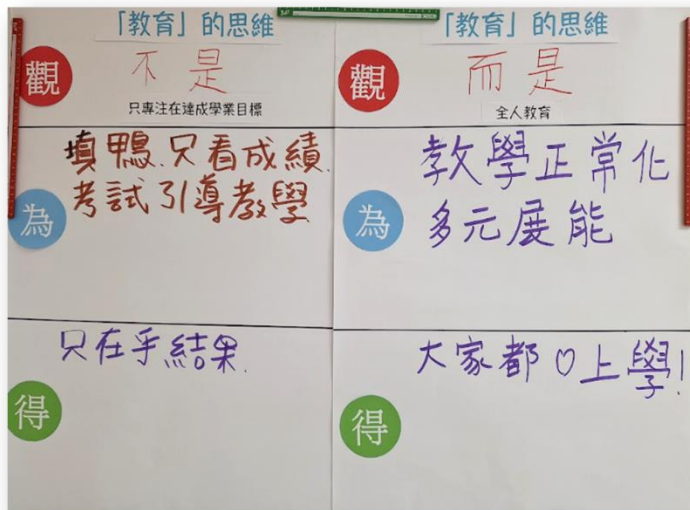 「教育」的思維
觀
不是
只專注在達成學業目標
為
填鴨、只看成績
考試引導教學
得
只在乎結果.
「教育」的思維
觀
而是
全人教育
為
教學正常化
多元展能
得
大家都♡上學!